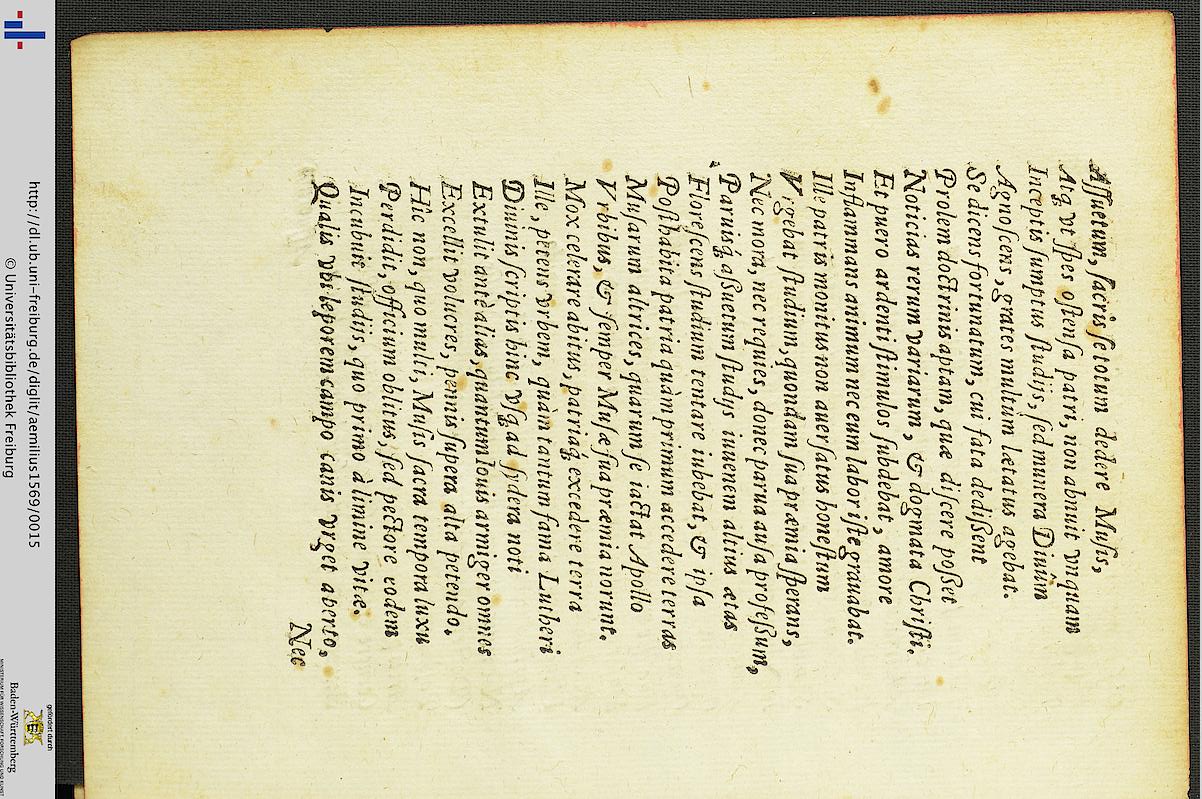 Aſſuetum, ſacris ſe totum dedere Muſis,
Atq́ vt ſpes oſtenſa patri, non abnuit vnquam
Inceptis ſumptus ſtudijs, ſed munera Diuûm
Agnoſcens, grates multùm lætatus agebat.
Se dicens fortunatum, cui fata dediſſent
Prolem doctrinis aptam, quæ diſcere poſſet
Noticias rerum variarum, & dogmata Chriſti.
Et puero ardenti ſtimulos ſubdebat, amore
Inflammans animum nec eum labor iſte grauabat.
Ille patris monitus non auerſatus honeſtum
Vrgebat ſtudium, quondam ſua præmia ſperans,
Nec mora, nec requies, donec parua auſa profeſſum,
Paruisq́ aſſuetum ſtudijs iuuenem altius ætas
Floreſcens ſtudium tentare iubebat, & ipſa
Poſthabita patria quàm primum accedere terras
Muſarum altrices, quarum ſe iactat Apollo
Vrbibus, & ſemper Muſæ ſua præmia norunt.
Mox celerare abitus, patriaq́ excedere terra
Ille, petens vrbem, quàm tantum fama Lutheri
Diuinis ſcriptis hinc vſq́ ad ſydera noti
Extulit antè alias, quantum Iouis armiger omnes
Excellit volucres, pennis ſupera alta petendo.
Hîc non, quo multi, Muſis ſacra tempora luxu
Perdidit, officium oblitus, ſed pectore eodem
Incubuit ſtudijs, quo primo à limine vitæ.
Qualis vbi leporem campo canis vrget aperto,
Nec
http://dl.ub.uni-freiburg.de/diglit/aemilius1569/0015
© Universitätsbibliothek Freiburg
gefördert durch
Baden-Württemberg
MINISTERIUM FÜR WISSENSCHAFT, FORSCHUNG UND KUNST